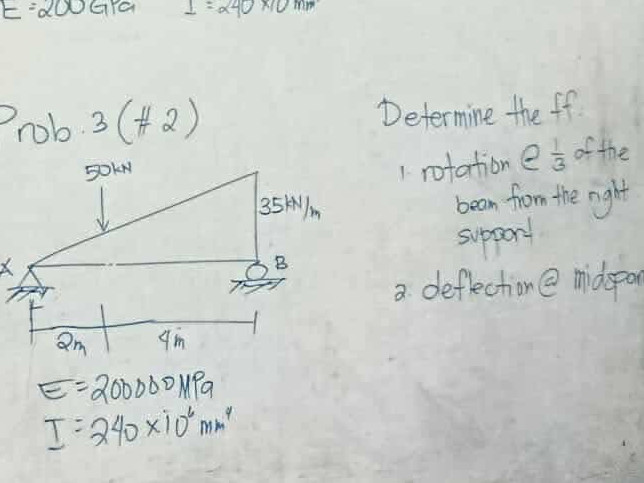 E = 200 GPa I = 240 x10 mm⁴
Prob. 3 (# 2)
50kN
35kN/m
B
2m 4m
E = 200000 MPa
I = 240 x10⁶ mm⁴
Determine the ff.
1. rotation @ 1/3 of the
beam from the right
support
2. deflection @ midspan